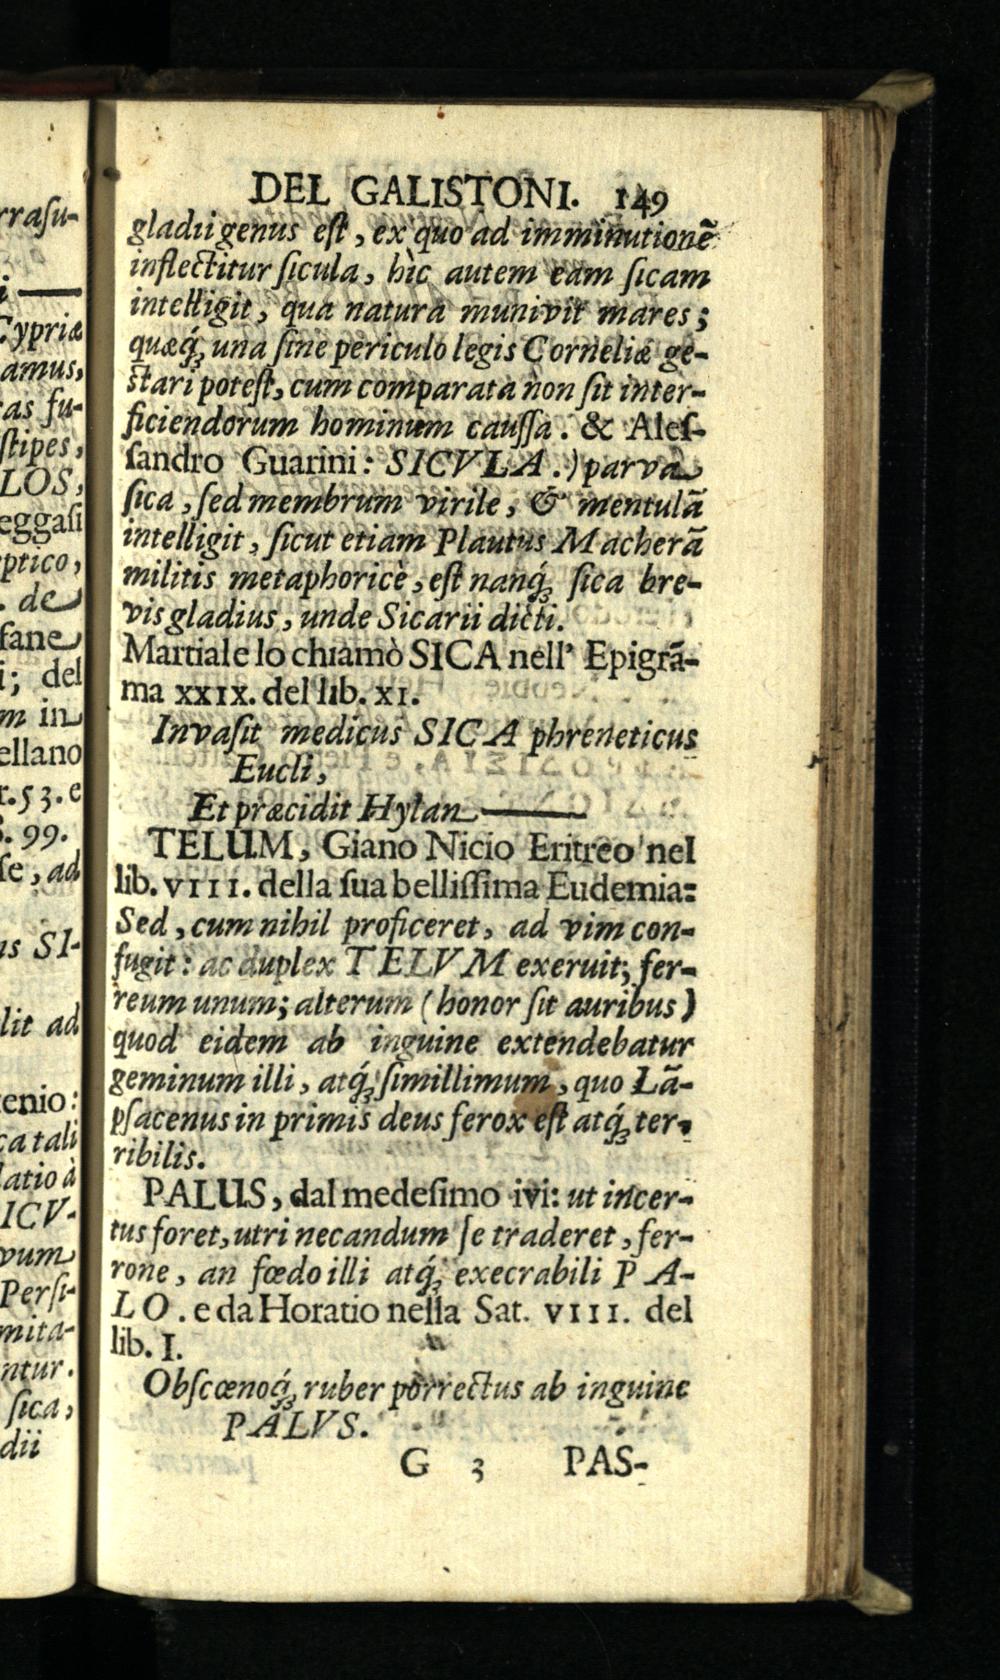 DEL GALISTONI. 149
gladii genus eſt, ex quo ad imminutionẽ
inflectitur ſicula, hìc autem eam ſicam
intelligit, qua natura munivit mares;
quæq́; una ſine periculo legis Corneliæ ge-
ſtari poteſt, cum comparata non ſit inter-
ficiendorum hominum cauſſa. & Aleſ-
ſandro Guarini: SICVLA.) parva
ſica, ſed membrum virile, & mentulã
intelligit, ſicut etiam Plautus Macherã
militis metaphoricè, eſt nanq́; ſica bre-
vis gladius, unde Sicarii dicti.
Martiale lo chiamò SICA nell' Epigrã-
ma XXIX. del lib. XI.
Invaſit medicus SICA phreneticus
Eucli,
Et præcidit Hylan ———
TELUM, Giano Nicio Eritreo nel
lib. VIII. della ſua belliſſima Eudemia:
Sed, cum nihil proficeret, ad vim con-
fugit: ac duplex TELVM exeruit; fer-
reum unum; alterum (honor ſit auribus)
quod eidem ab inguine extendebatur
geminum illi, atq́; ſimillimum, quo Lã-
pſacenus in primis deus ferox eſt atq́; ter-
ribilis.
PALUS, dal medeſimo ivi: ut incer-
tus foret, utri necandum ſe traderet, fer-
rone, an fœdo illi atq́; execrabili PA-
LO. e da Horatio nella Sat. VIII. del
lib. I.
Obſcœnoq́; ruber porrectus ab inguine
PALVS.
G 3 PAS-
raſu-
Cypriæ
amus,
as fu-
ſtipes,
LOS,
eggaſi
ptico,
. de
fane
i; del
m in
ellano
r. 53. e
. 99.
ſe, ad
us SI-
lit ad
enio:
ca tali
latio à
ICV-
vum
Perſi-
mita-
ntur.
ſica,
dii